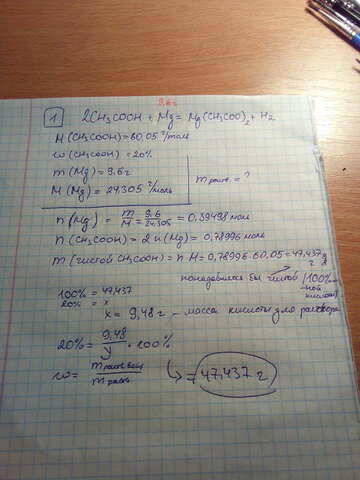 9,6г
1 2CH3COOH + Mg = Mg(CH3COO)2 + H2
M (CH3COOH) = 60,05 г/моль
ω (CH3COOH) = 20%
m (Mg) = 9.6 г
M (Mg) = 24,305 г/моль
m раст. = ?
n (Mg) = m/M = 9.6/24,305 = 0,39498 моль
n (CH3COOH) = 2 n (Mg) = 0,78996 моль
m (чистой CH3COOH) = n · M = 0,78996 · 60,05 = 47,437 г
понадобился бы чистой (100%
-ной
кислоты)
100% = 47,437
20% = x
x = 9,48 г – масса кислоты для раствора
20% = 9,48/y · 100%
ω = m раст. вещ / m раств
= 47,437 г